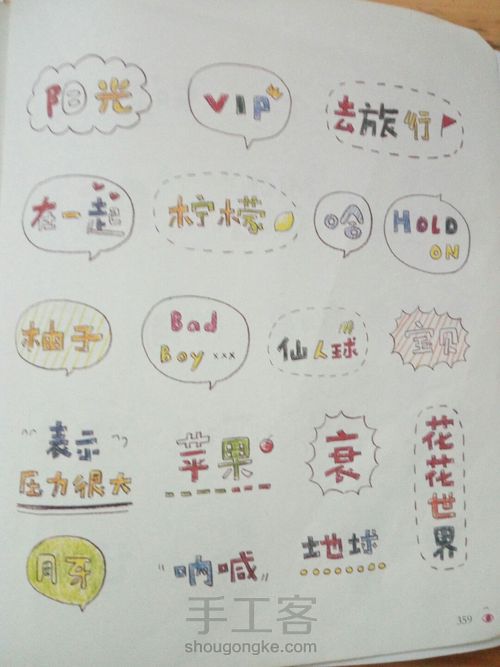 阳光
VIP
去旅行
在一起
柠檬
哈
HOLD
ON
柚子
Bad
Boy ...
仙人球
宝贝
“表示”
压力很大
苹果
衰
花花世界
月牙
“呐喊”
地球
359
手工客
shougongke.com